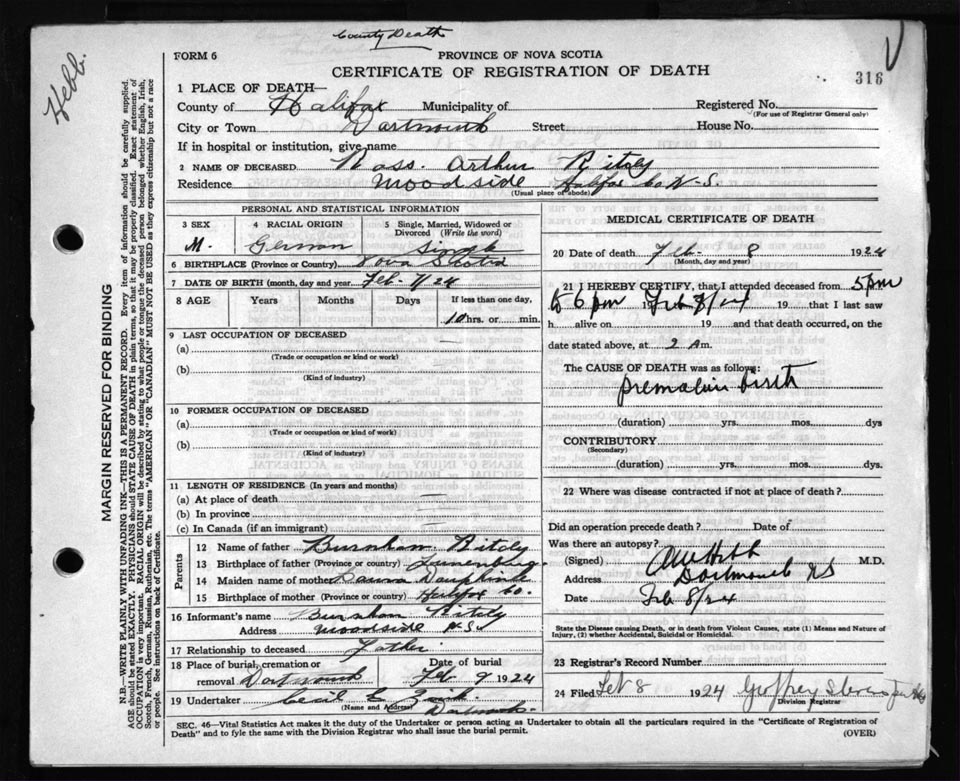 County Death
FORM 6
PROVINCE OF NOVA SCOTIA
CERTIFICATE OF REGISTRATION OF DEATH
316
Hebb.
1 PLACE OF DEATH—
County of Halifax Municipality of Registered No.
(For use of Registrar General only)
City or Town Dartmouth Street House No.
If in hospital or institution, give name
2 NAME OF DECEASED Ross. Arthur Ritcy
Residence Woodside Halifax Co N.S.
(Usual place of abode)
PERSONAL AND STATISTICAL INFORMATION
3 SEX 4 RACIAL ORIGIN 5 Single, Married, Widowed or Divorced (Write the word)
M. German Single
6 BIRTHPLACE (Province or Country) Nova Scotia
7 DATE OF BIRTH (month, day and year) Feb. 7/24
8 AGE Years Months Days If less than one day,
10 hrs. or min.
9 LAST OCCUPATION OF DECEASED
(a)
(Trade or occupation or kind of work)
(b)
(Kind of industry)
10 FORMER OCCUPATION OF DECEASED
(a)
(Trade or occupation or kind of work)
(b)
(Kind of industry)
11 LENGTH OF RESIDENCE (In years and months)
(a) At place of death
(b) In province
(c) In Canada (if an immigrant)
Parents
12 Name of father Burnham Ritcy
13 Birthplace of father (Province or Country) Lunenburg.
14 Maiden name of mother Dauphine
15 Birthplace of mother (Province or Country) Halifax Co.
16 Informant's name Burnham Ritcy
Address Woodside N.S.
17 Relationship to deceased Father
18 Place of burial, cremation or removal Dartmouth Date of burial Feb 9 1924
19 Undertaker Cecil E. Zink
(Name and Address) Dartmouth.
MEDICAL CERTIFICATE OF DEATH
20 Date of death Feb- 8 1924
(Month, day and year)
21 I HEREBY CERTIFY, that I attended deceased from 5 pm
to 6 pm 19 Feb 8/24 19 that I last saw
h alive on 19 and that death occurred, on the
date stated above, at 2 A m.
The CAUSE OF DEATH was as follows:
premature birth
(duration) yrs. mos. dys
CONTRIBUTORY
(Secondary)
(duration) yrs. mos. dys.
22 Where was disease contracted if not at place of death?
Did an operation precede death? Date of
Was there an autopsy?
(Signed) Hebb M.D.
Address Dartmouth NS
Date Feb 8/24
State the Disease causing Death, or in death from Violent Causes, state (1) Means and Nature of Injury, (2) whether Accidental, Suicidal or Homicidal.
23 Registrar's Record Number
24 Filed Feb 8 1924 Geoffrey Stevens
Division Registrar
SEC. 46—Vital Statistics Act makes it the duty of the Undertaker or person acting as Undertaker to obtain all the particulars required in the "Certificate of Registration of
Death" and to fyle the same with the Division Registrar who shall issue the burial permit.
(OVER)
MARGIN RESERVED FOR BINDING
N.B.—WRITE PLAINLY WITH UNFADING INK—THIS IS A PERMANENT RECORD. Every item of information should be carefully supplied.
AGE should be stated EXACTLY. PHYSICIANS should STATE CAUSE OF DEATH in plain terms, so that it may be properly classified. Exact statement of
OCCUPATION is very important. RACIAL ORIGIN will be described by stating to what people or tongue the deceased person belonged whether English, Irish,
Scotch, French, German, Russian, Ruthenian, etc. The terms "AMERICAN" or "CANADIAN" MUST NOT BE USED as they express citizenship but not a race
or people. See instructions on back of Certificate.